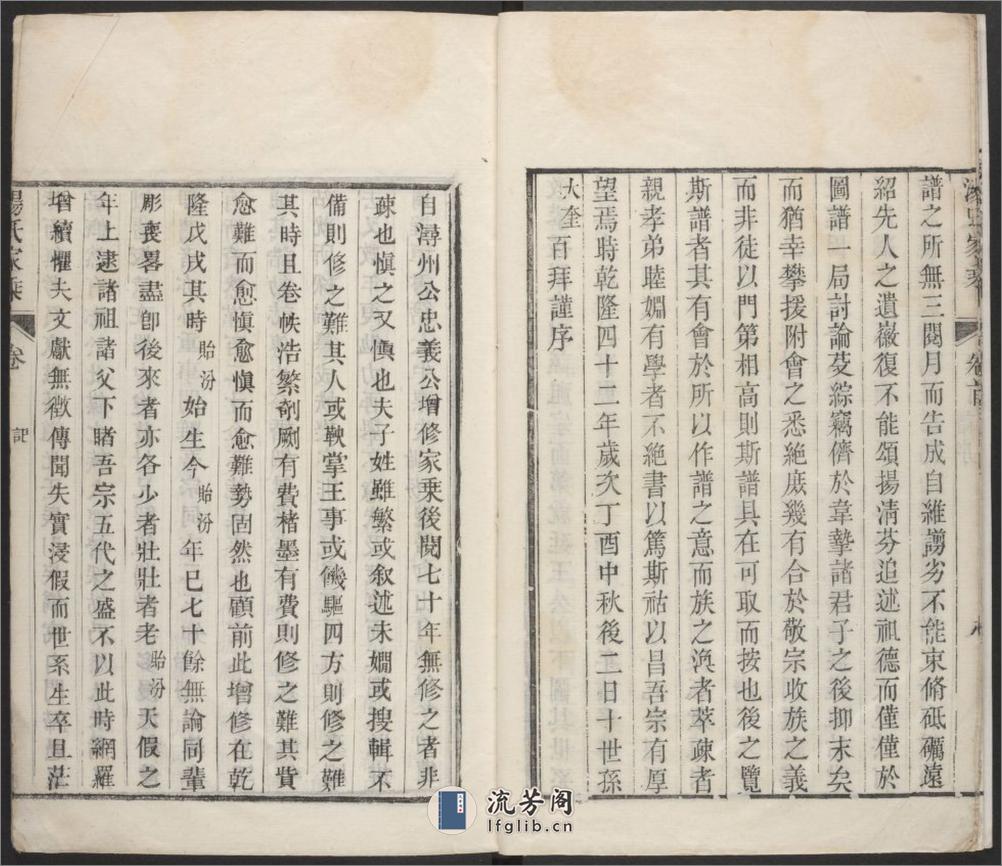 譜之所無三閱月而告成自維譾劣不能束脩砥礪遠
紹先人之遺徽復不能頌揚清芬追述祖德而僅僅於
圖譜一局討論芟綜竊儕於韋摯諸君子之後抑末矣
而猶幸攀援附會之悉絕庶幾有合於敬宗收族之義
而非徒以門第相高則斯譜具在可取而按也後之覽
斯譜者其有會於所以作譜之意而族之渙者萃疎者
親孝弟睦婣有學者不絕書以篤斯祜以昌吾宗有厚
望焉時乾隆四十二年歲次丁酉中秋後二日十世孫
大奎百拜謹序
自潯州公忠義公增修家乘後閱七十年無修之者非
疎也愼之又愼也夫子姓雖繁或叙述未嫻或搜輯不
備則修之難其人或鞅掌王事或饑驅四方則修之難
其時且卷帙浩繁剞劂有費楮墨有費則修之難其貲
愈難而愈愼愈愼而愈難勢固然也顧前此增修在乾
隆戊戌其時貽汾始生今貽汾年已七十餘無論同輩
彫喪畧盡卽後來者亦各少者壯壯者老貽汾天假之
年上逮諸祖諸父下睹吾宗五代之盛不以此時網羅
增續懼夫文獻無徵傳聞失實浸假而世系生卒且茫
湯氏家乘
卷
記
流芳阁
lfglib.cn